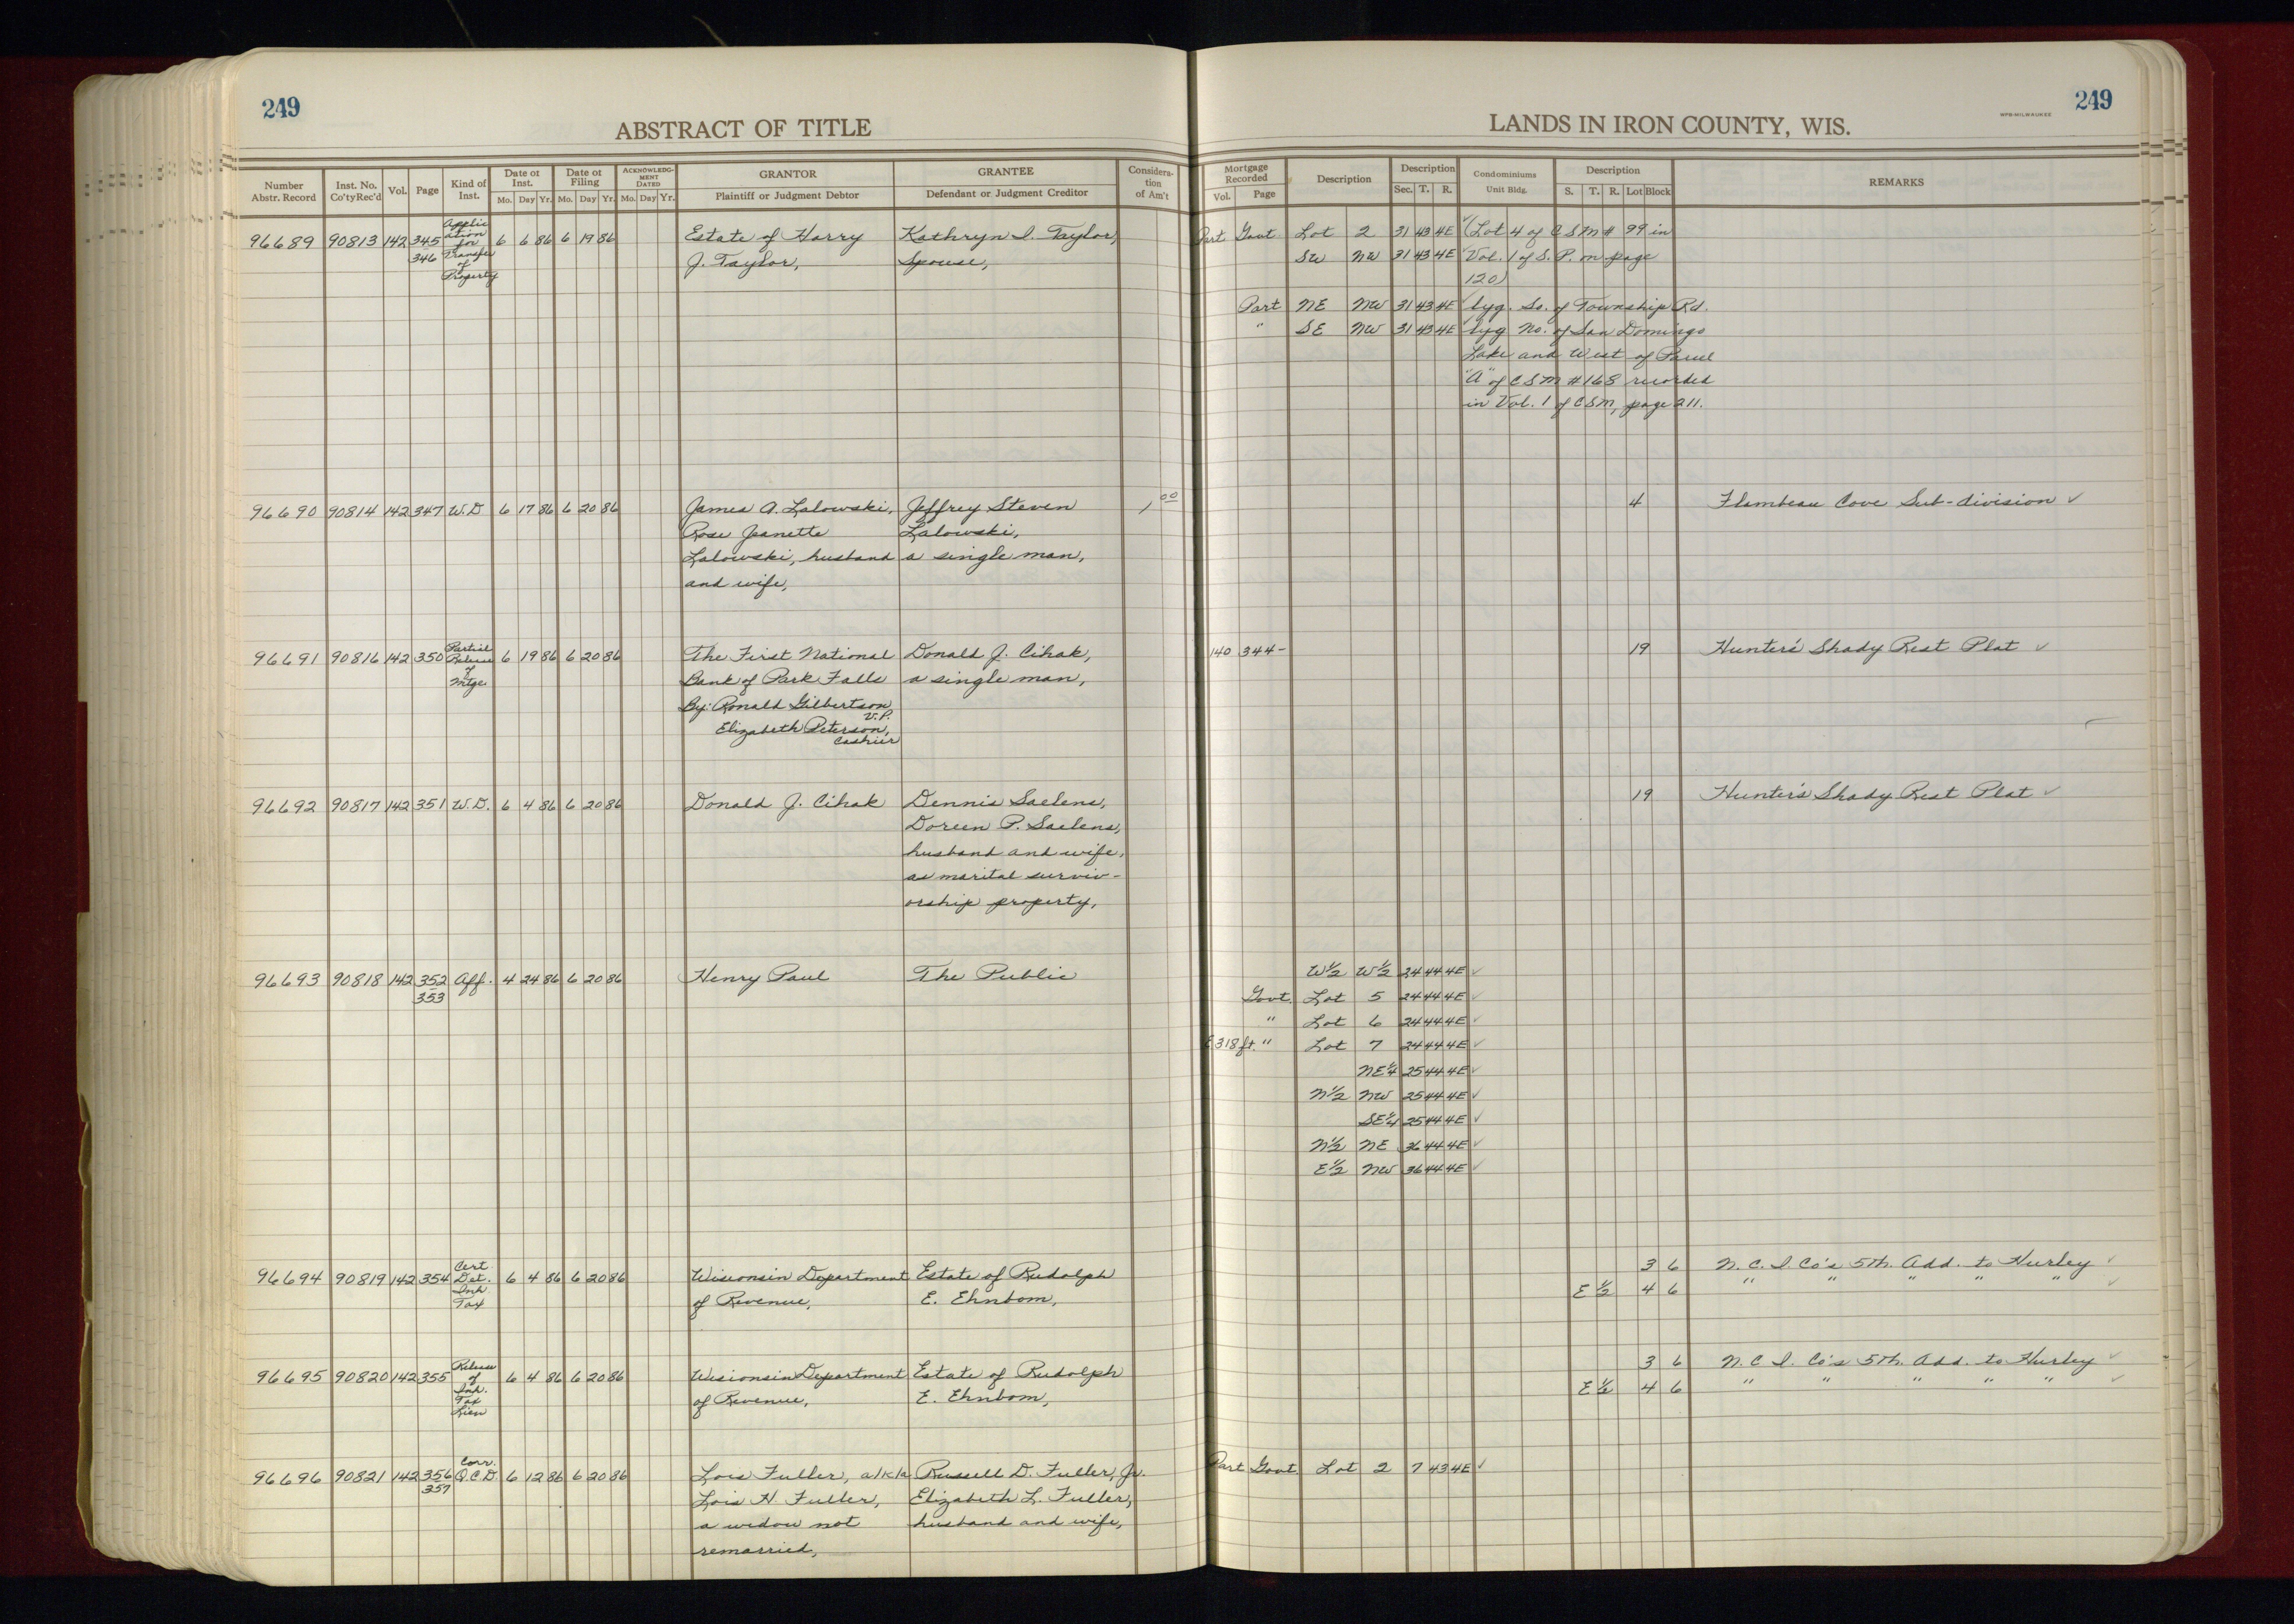 249
249
ABSTRACT OF TITLE
LANDS IN IRON COUNTY, WIS.
WPB-MILWAUKEE
Number Abstr. Record
Inst. No. Co'ty Rec'd
Vol.
Page
Kind of Inst.
Date of Inst.
Mo. Day Yr.
Date of Filing
Mo. Day Yr.
ACKNOWLEDG-MENT DATED
Mo. Day Yr.
GRANTOR
Plaintiff or Judgment Debtor
GRANTEE
Defendant or Judgment Creditor
Considera-tion of Am't
Mortgage Recorded
Vol. Page
Description
Description
Sec. T. R.
Condominiums
Unit Bldg.
Description
S. T. R. Lot Block
REMARKS
96689 90813 142 345 Applic 6 6 86 6 19 86 Estate of Harry Kathryn I. Taylor, Part Govt Lot 2 31 43 4E ✓ (Lot 4 of CSM # 99 in
346 ation for Transfer of Property J. Taylor, Spouse, SW NW 31 43 4E Vol. 1 of S. P. on page
120)
Part NE NW 31 43 4E ✓ lyg. So. of Township Rd.
" SE NW 31 43 4E ✓ lyg No. of San Domingo
Lake and West of Parcel
"A" of CSM #168 recorded
in Vol. 1 of CSM, page 211.
96690 90814 142 347 W.D 6 17 86 6 20 86 James A. Lalowski, Jeffrey Steven 1,00 4 Flambeau Cove Sub-division ✓
Rose Jeanette Lalowski,
Lalowski, husband a single man,
and wife,
96691 90816 142 350 Partial Release of Mtge 6 19 86 6 20 86 The First National Donald J. Cihak, 140 344- 19 Hunter's Shady Rest Plat ✓
Bank of Park Falls a single man,
By: Ronald Gilbertson, V.P.
Elizabeth Peterson, Cashier
96692 90817 142 351 W.D. 6 4 86 6 20 86 Donald J. Cihak Dennis Saelens, 19 Hunter's Shady Rest Plat ✓
Doreen P. Saelens,
husband and wife,
as marital surviv-
orship property,
96693 90818 142 352 Aff. 4 24 86 6 20 86 Henry Paul The Public W½ W½ 24 44 4E ✓
353 Govt. Lot 5 24 44 4E ✓
" Lot 6 24 44 4E ✓
E 318 ft. " Lot 7 24 44 4E ✓
NE¼ 25 44 4E ✓
N½ NW 25 44 4E ✓
SE¼ 25 44 4E ✓
N½ NE 36 44 4E ✓
E½ NW 36 44 4E ✓
96694 90819 142 354 Cert. Det. Inh. Tax 6 4 86 6 20 86 Wisconsin Department Estate of Rudolph 3 6 N. C. I. Co's 5th. Add. to Hurley ✓
of Revenue, E. Ehnbom, E ½ 4 6 " " " " " ✓
96695 90820 142 355 Release of Inh. Tax Lien 6 4 86 6 20 86 Wisconsin Department Estate of Rudolph 3 6 N. C. I. Co's 5th. Add. to Hurley ✓
of Revenue, E. Ehnbom, E ½ 4 6 " " " " " ✓
96696 90821 142 356 Corr. Q.C.D. 6 12 86 6 20 86 Lois Fuller, a/k/a Russell D. Fuller, Jr. Part Govt Lot 2 7 43 4E ✓
357 Lois H Fuller, Elizabeth L. Fuller,
a widow not husband and wife,
remarried,